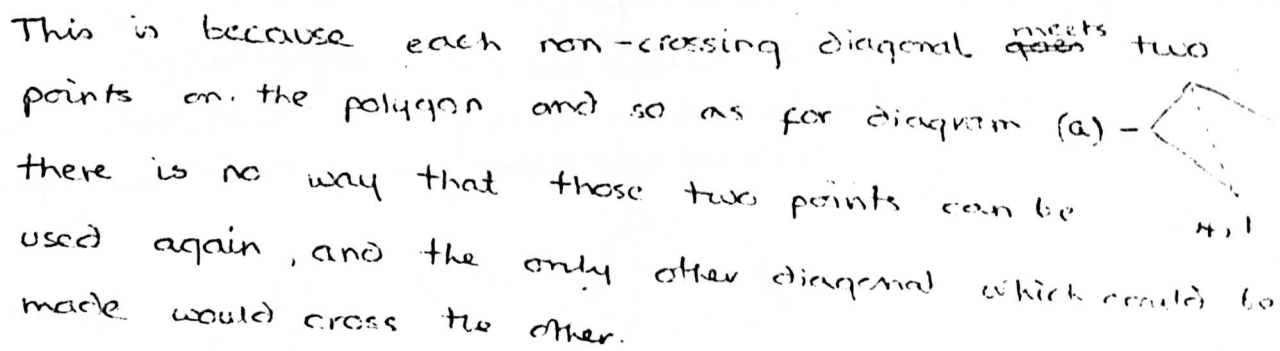 This is because each non-crossing diagonal meets two
points on. the polygon and so as for diagram (a) -
there is no way that those two points can be
4, 1
used again, and the only other diagonal which could be
made would cross the other.